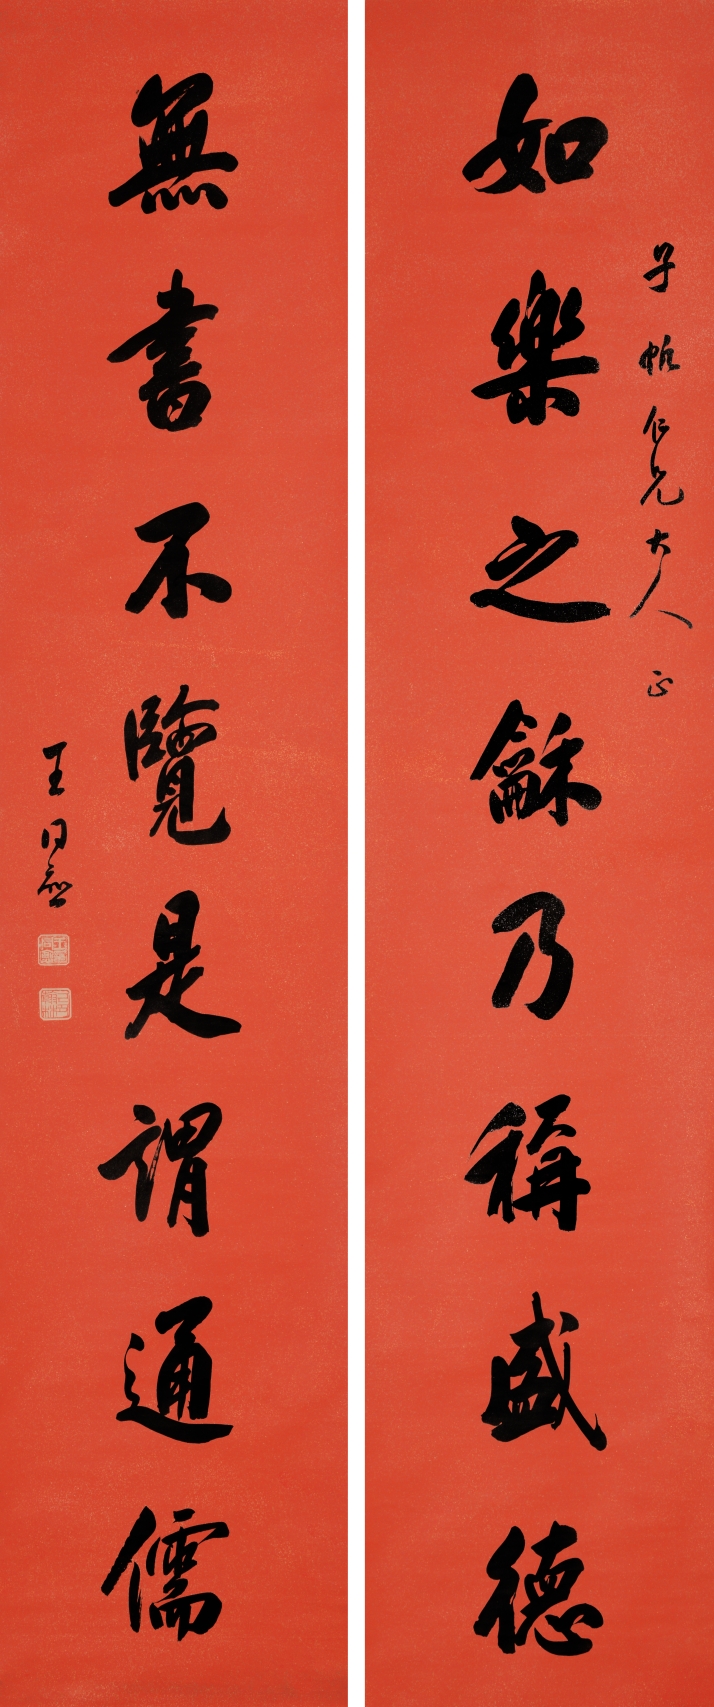 子帆仁兄大人正
如樂之龢乃稱盛德
無書不覽是謂通儒
王同愈